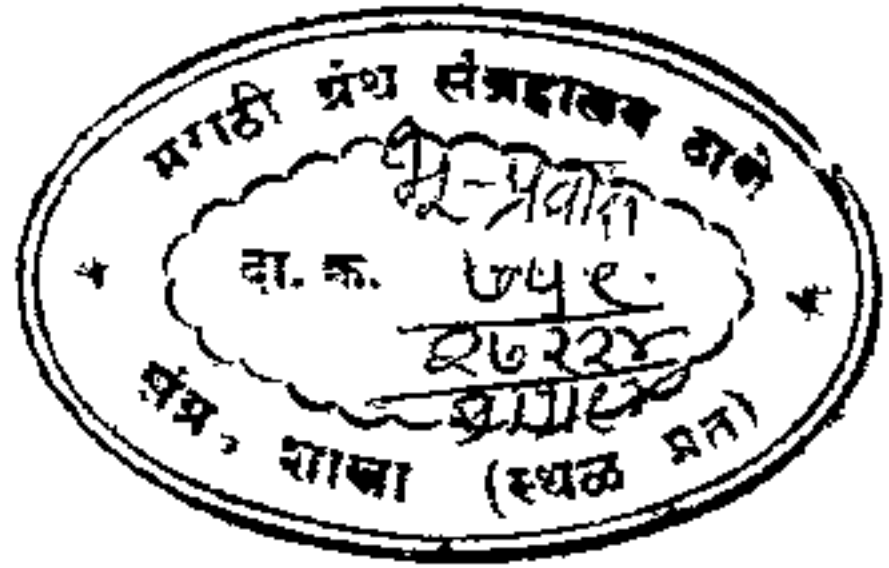 मराठी ग्रंथ संग्रहालय ठाणे
भू-प्रवास
दा. क्र. ७५९
२७२२४
संग्र, शाखा (स्थळ प्रत)